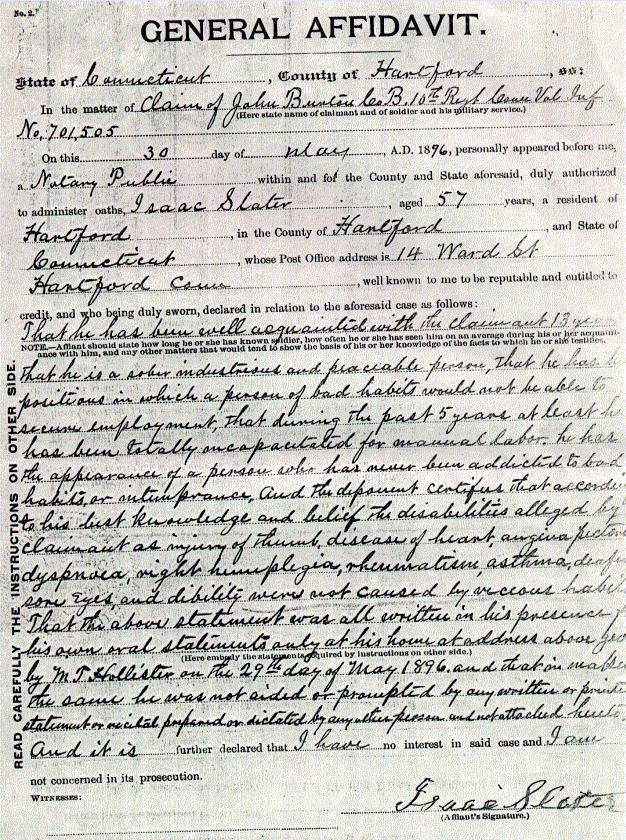 No. 2.
GENERAL AFFIDAVIT.
State of Connecticut, County of Hartford, ss:
In the matter of Claim of John Burton Co B. 10th Regt Conn Vol Inf
(Here state name of claimant and of soldier and his military service.)
No, 701,505
On this 30 day of May, A.D. 1896, personally appeared before me,
a Notary Public within and for the County and State aforesaid, duly authorized
to administer oaths, Isaac Slater, aged 57 years, a resident of
Hartford, in the County of Hartford, and State of
Connecticut, whose Post Office address is 14 Ward St
Hartford Conn, well known to me to be reputable and entitled to
credit, and who being duly sworn, declared in relation to the aforesaid case as follows:
That he has been well acquainted with the claimant 13 years
NOTE.—Affiant should state how long he or she has known soldier, how often he or she has seen him on an average during his or her acquaint-
ance with him, and any other matters that would tend to show the basis of his or her knowledge of the facts to which he or she testifies.
that he is a sober industrious and peaceable person, that he has h
positions in which a person of bad habits would not be able to
secure employment, that during the past 5 years at least he
has been totally incapacitated for manual labor. he has
the appearance of a person who has never been addicted to bad
habits, or intemprance, And the deponent certifies that accordin
to his best knowledge and belief the disabilities alleged by
claimant as injury of thumb, disease of heart, angina pectori
dyspnoea, right hemplegia, rheumatism, asthma, deafn
sore eyes, and dibility were not caused by viceous habit
That the above statement was all written in his presence f
his own oral statements only at his home at address above giv
(Here embody the statements required by instructions on other side.)
by M. T. Hollister on the 29th day of May 1896. and that in makin
the same he was not aided or prompted by any written or printe
statement or recital prepared or dictated by any other person and not attached hereto,
And it is further declared that I have no interest in said case and I am
not concerned in its prosecution.
WITNESSES:
Isaac Slater
(Affiant's Signature.)
READ CAREFULLY THE INSTRUCTIONS ON OTHER SIDE.